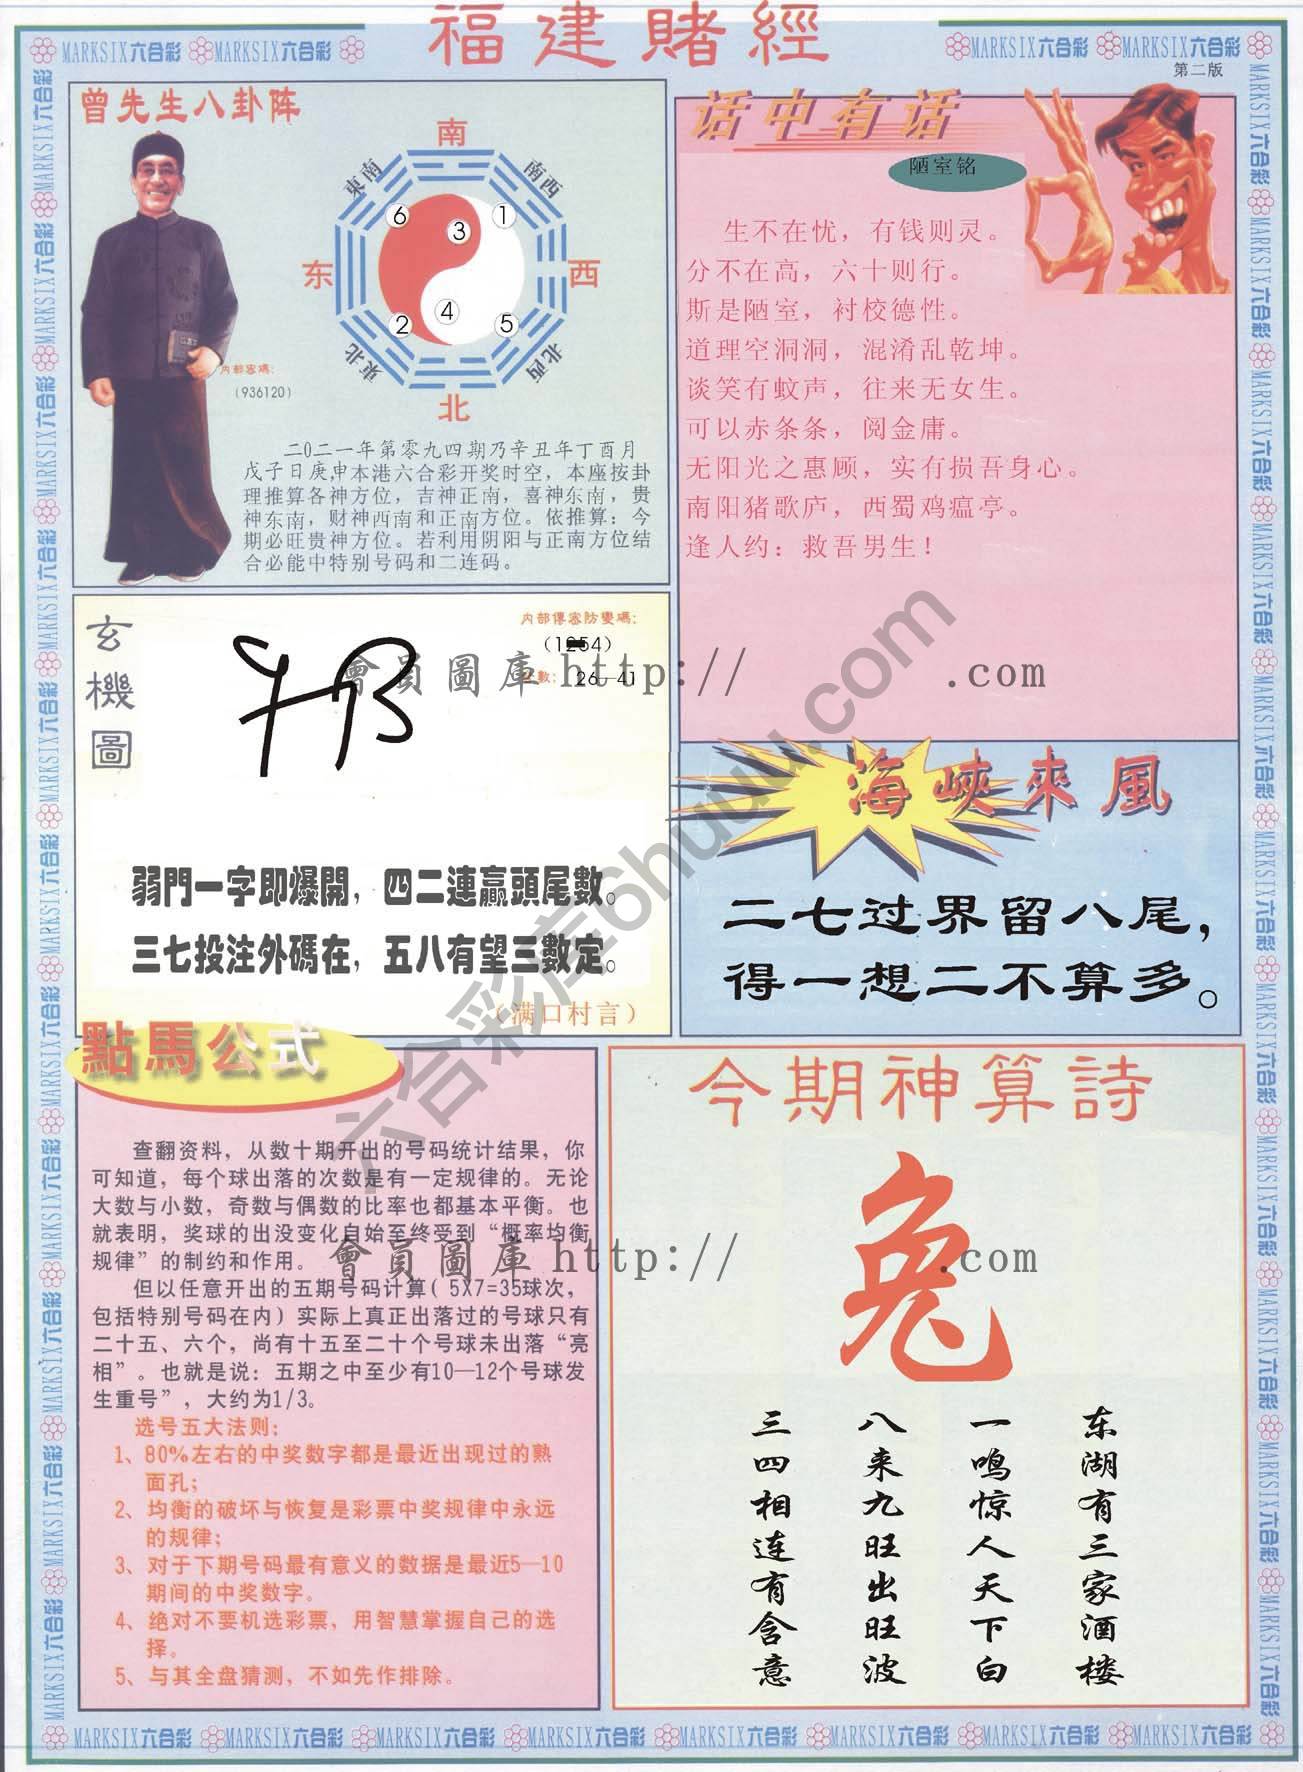 福建賭經
MARKSIX六合彩 MARKSIX六合彩
MARKSIX六合彩 MARKSIX六合彩
第二版
曾先生八卦阵
南
東南
南西
6
1
3
东
西
4
2
5
東北
北西
北
内部密碼:
(936120)
二0二一年第零九四期乃辛丑年丁酉月
戊子日庚申本港六合彩开奖时空，本座按卦
理推算各神方位，吉神正南，喜神东南，贵
神东南，财神西南和正南方位。依推算：今
期必旺贵神方位。若利用阴阳与正南方位结
合必能中特别号码和二连码。
话中有话
陋室铭
生不在忧，有钱则灵。
分不在高，六十则行。
斯是陋室，衬校德性。
道理空洞洞，混淆乱乾坤。
谈笑有蚊声，往来无女生。
可以赤条条，阅金庸。
无阳光之惠顾，实有损吾身心。
南阳猪歌庐，西蜀鸡瘟亭。
逢人约：救吾男生！
玄機圖
内部傳密防變碼:
數: 26—41
會員圖庫 http:// .com
弱門一字即爆開，四二連贏頭尾數。
三七投注外碼在，五八有望三數定。
(满口村言)
海峽來風
二七过界留八尾，
得一想二不算多。
六合彩库6huuu.com
點馬公式
查翻资料，从数十期开出的号码统计结果，你
可知道，每个球出落的次数是有一定规律的。无论
大数与小数，奇数与偶数的比率也都基本平衡。也
就表明，奖球的出没变化自始至终受到“概率均衡
规律”的制约和作用。
但以任意开出的五期号码计算( 5X7=35球次，
包括特别号码在内)实际上真正出落过的号球只有
二十五、六个，尚有十五至二十个号球未出落“亮
相”。也就是说：五期之中至少有10—12个号球发
生重号”，大约为1/3。
选号五大法则：
1、80%左右的中奖数字都是最近出现过的熟
面孔；
2、均衡的破坏与恢复是彩票中奖规律中永远
的规律；
3、对于下期号码最有意义的数据是最近5—10
期间的中奖数字。
4、绝对不要机选彩票，用智慧掌握自己的选
择。
5、与其全盘猜测，不如先作排除。
會員圖庫 http:// .com
今期神算詩
兔
东湖有三家酒楼
一鸣惊人天下白
八来九旺出旺波
三四相连有含意
MARKSIX六合彩 MARKSIX六合彩 MARKSIX六合彩 MARKSIX六合彩 MARKSIX六合彩 MARKSIX六合彩 MARKSIX六合彩 MARKSIX六合彩